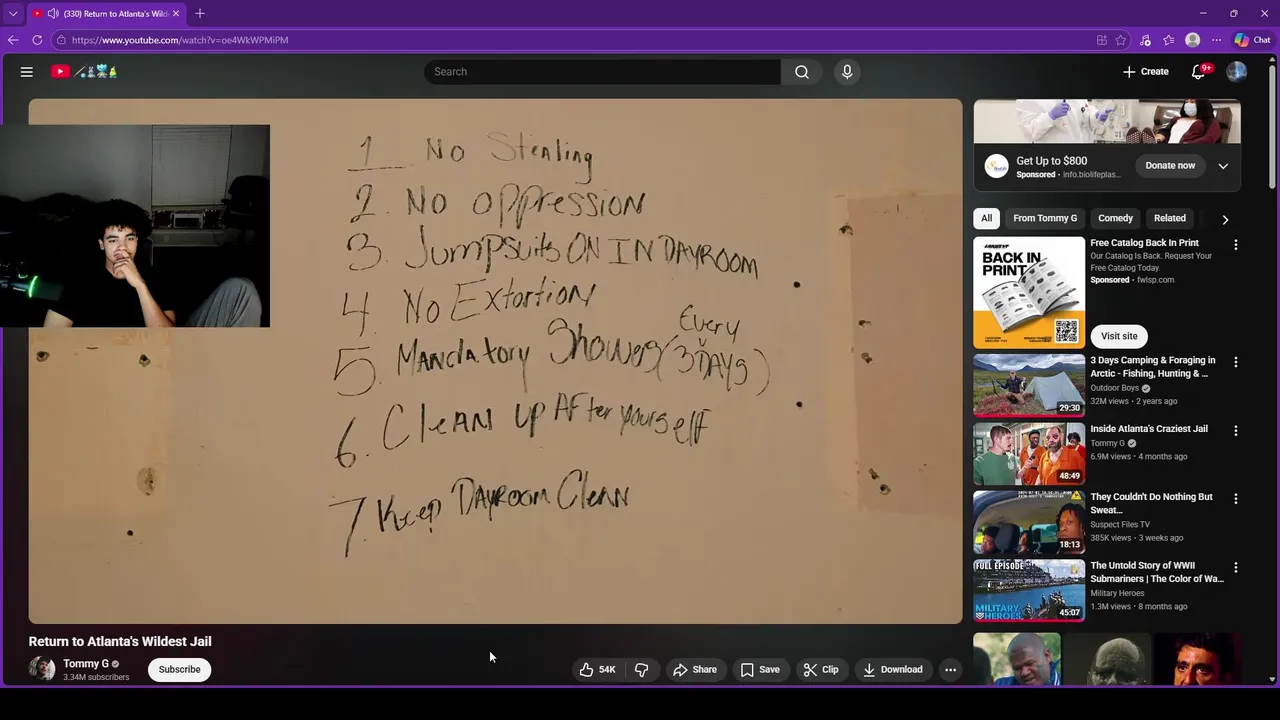 (330) Return to Atlanta's Wild
https://www.youtube.com/watch?v=oe4WkWPMiPM
Chat
Search
Create
9+
1 No Stealing
2. No oppression
3. Jumpsuits ON IN DAYROOM
4. No Extortion
5. Mandatory Showers (Every 3 DAYS)
6. Clean up After yourself
7. Keep Dayroom Clean
Return to Atlanta's Wildest Jail
Tommy G
3.34M subscribers
Subscribe
54K
Share
Save
Clip
Download
Get Up to $800
Sponsored · info.biolifeplas...
Donate now
All
From Tommy G
Comedy
Related
BACK IN PRINT
Free Catalog Back In Print
Our Catalog Is Back. Request Your
Free Catalog Today.
Sponsored · fwlsp.com
Visit site
29:30
3 Days Camping & Foraging in
Arctic - Fishing, Hunting & ...
Outdoor Boys
32M views • 2 years ago
48:49
Inside Atlanta's Craziest Jail
Tommy G
6.9M views • 4 months ago
18:13
They Couldn't Do Nothing But
Sweat...
Suspect Files TV
385K views • 3 weeks ago
FULL EPISODE
MILITARY HEROES
45:07
The Untold Story of WWII
Submariners | The Color of Wa...
Military Heroes
1.3M views • 8 months ago